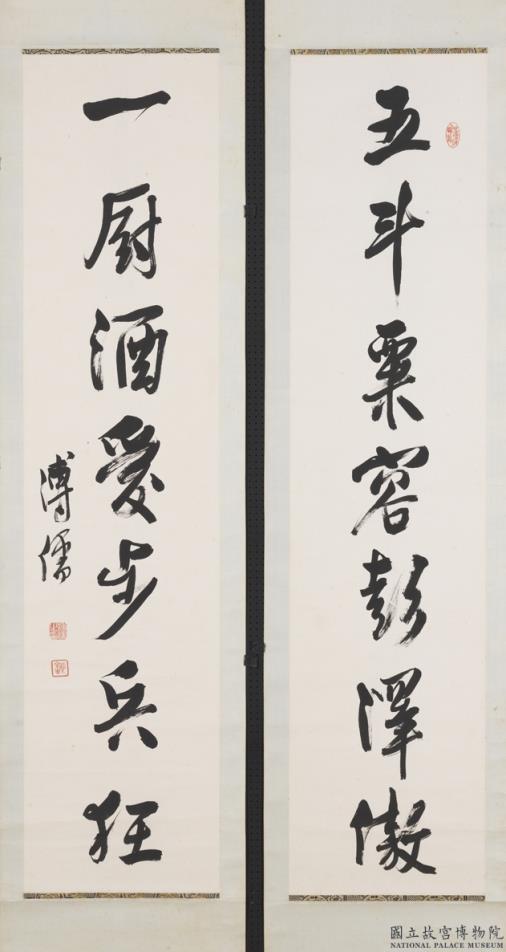 五斗粟容彭澤傲
一廚酒愛步兵狂
溥儒
國立故宮博物院
NATIONAL PALACE MUSEUM